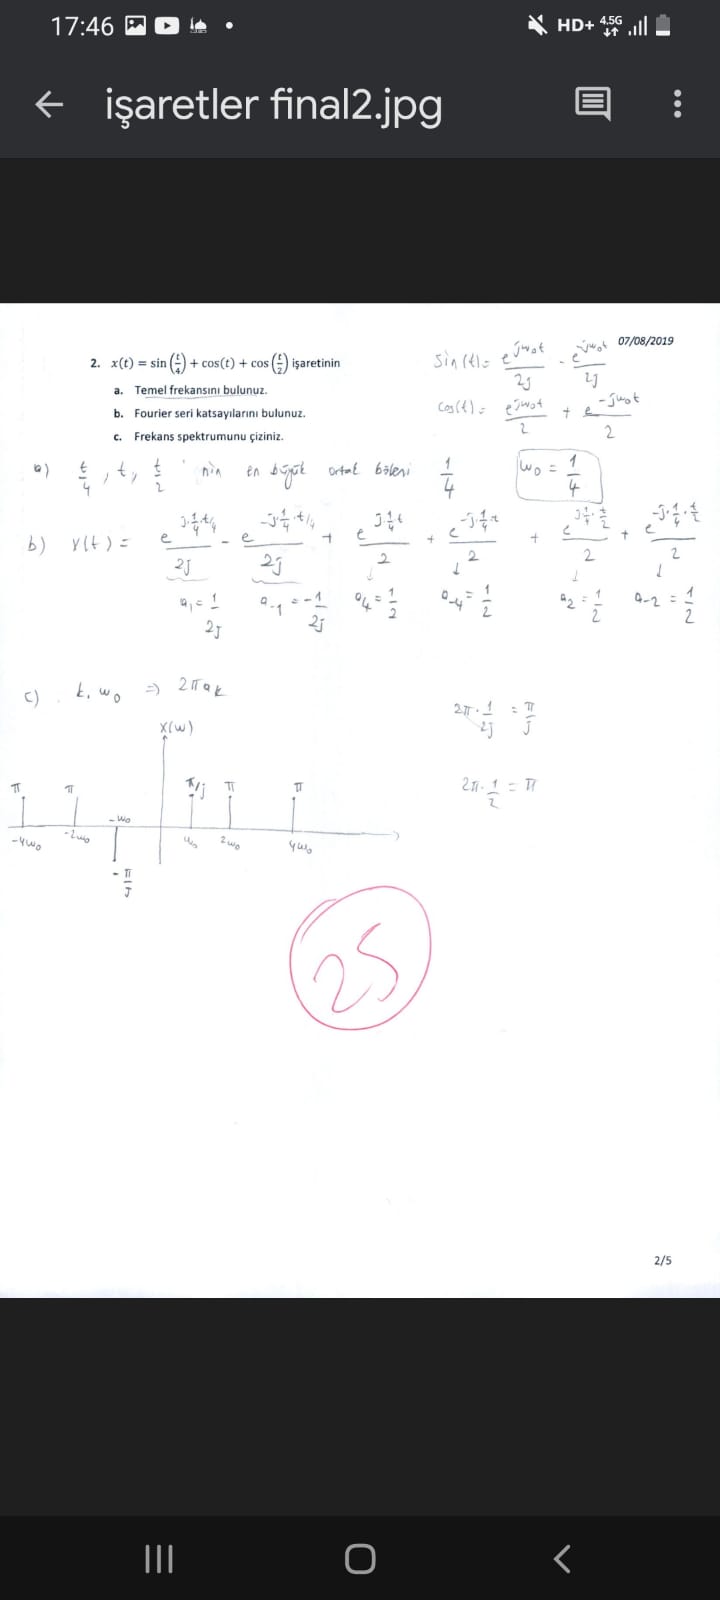 17:46
HD+ 4.5G
işaretler final2.jpg
07/08/2019
2. x(t) = sin(t/4) + cos(t) + cos(t/2) işaretinin
a. Temel frekansını bulunuz.
b. Fourier seri katsayılarını bulunuz.
c. Frekans spektrumunu çiziniz.
sin(t) = e^{jw₀t}/2j - e^{-jw₀t}/2j
cos(t) = e^{jw₀t}/2 + e^{-jw₀t}/2
a) t/4, t, t/2 'nin en büyük ortak böleni 1/4 w₀ = 1/4
b) x(t) = e^{j·1/4·t/4}/2j - e^{-j·1/4·t/4}/2j + e^{j·1/4·t}/2 + e^{-j·1/4·t}/2 + e^{j·1/4·t/2}/2 + e^{-j·1/4·t/2}/2
a₁ = 1/2j a₋₁ = -1/2j a₄ = 1/2 a₋₄ = 1/2 a₂ = 1/2 a₋₂ = 1/2
c) k, w₀ ⇒ 2πaₖ
2π·1/2j = π/j
2π·1/2 = π
X(w)
π π π/j π π
-4w₀ -2w₀ -w₀ w₀ 2w₀ 4w₀
-π/j
25
2/5